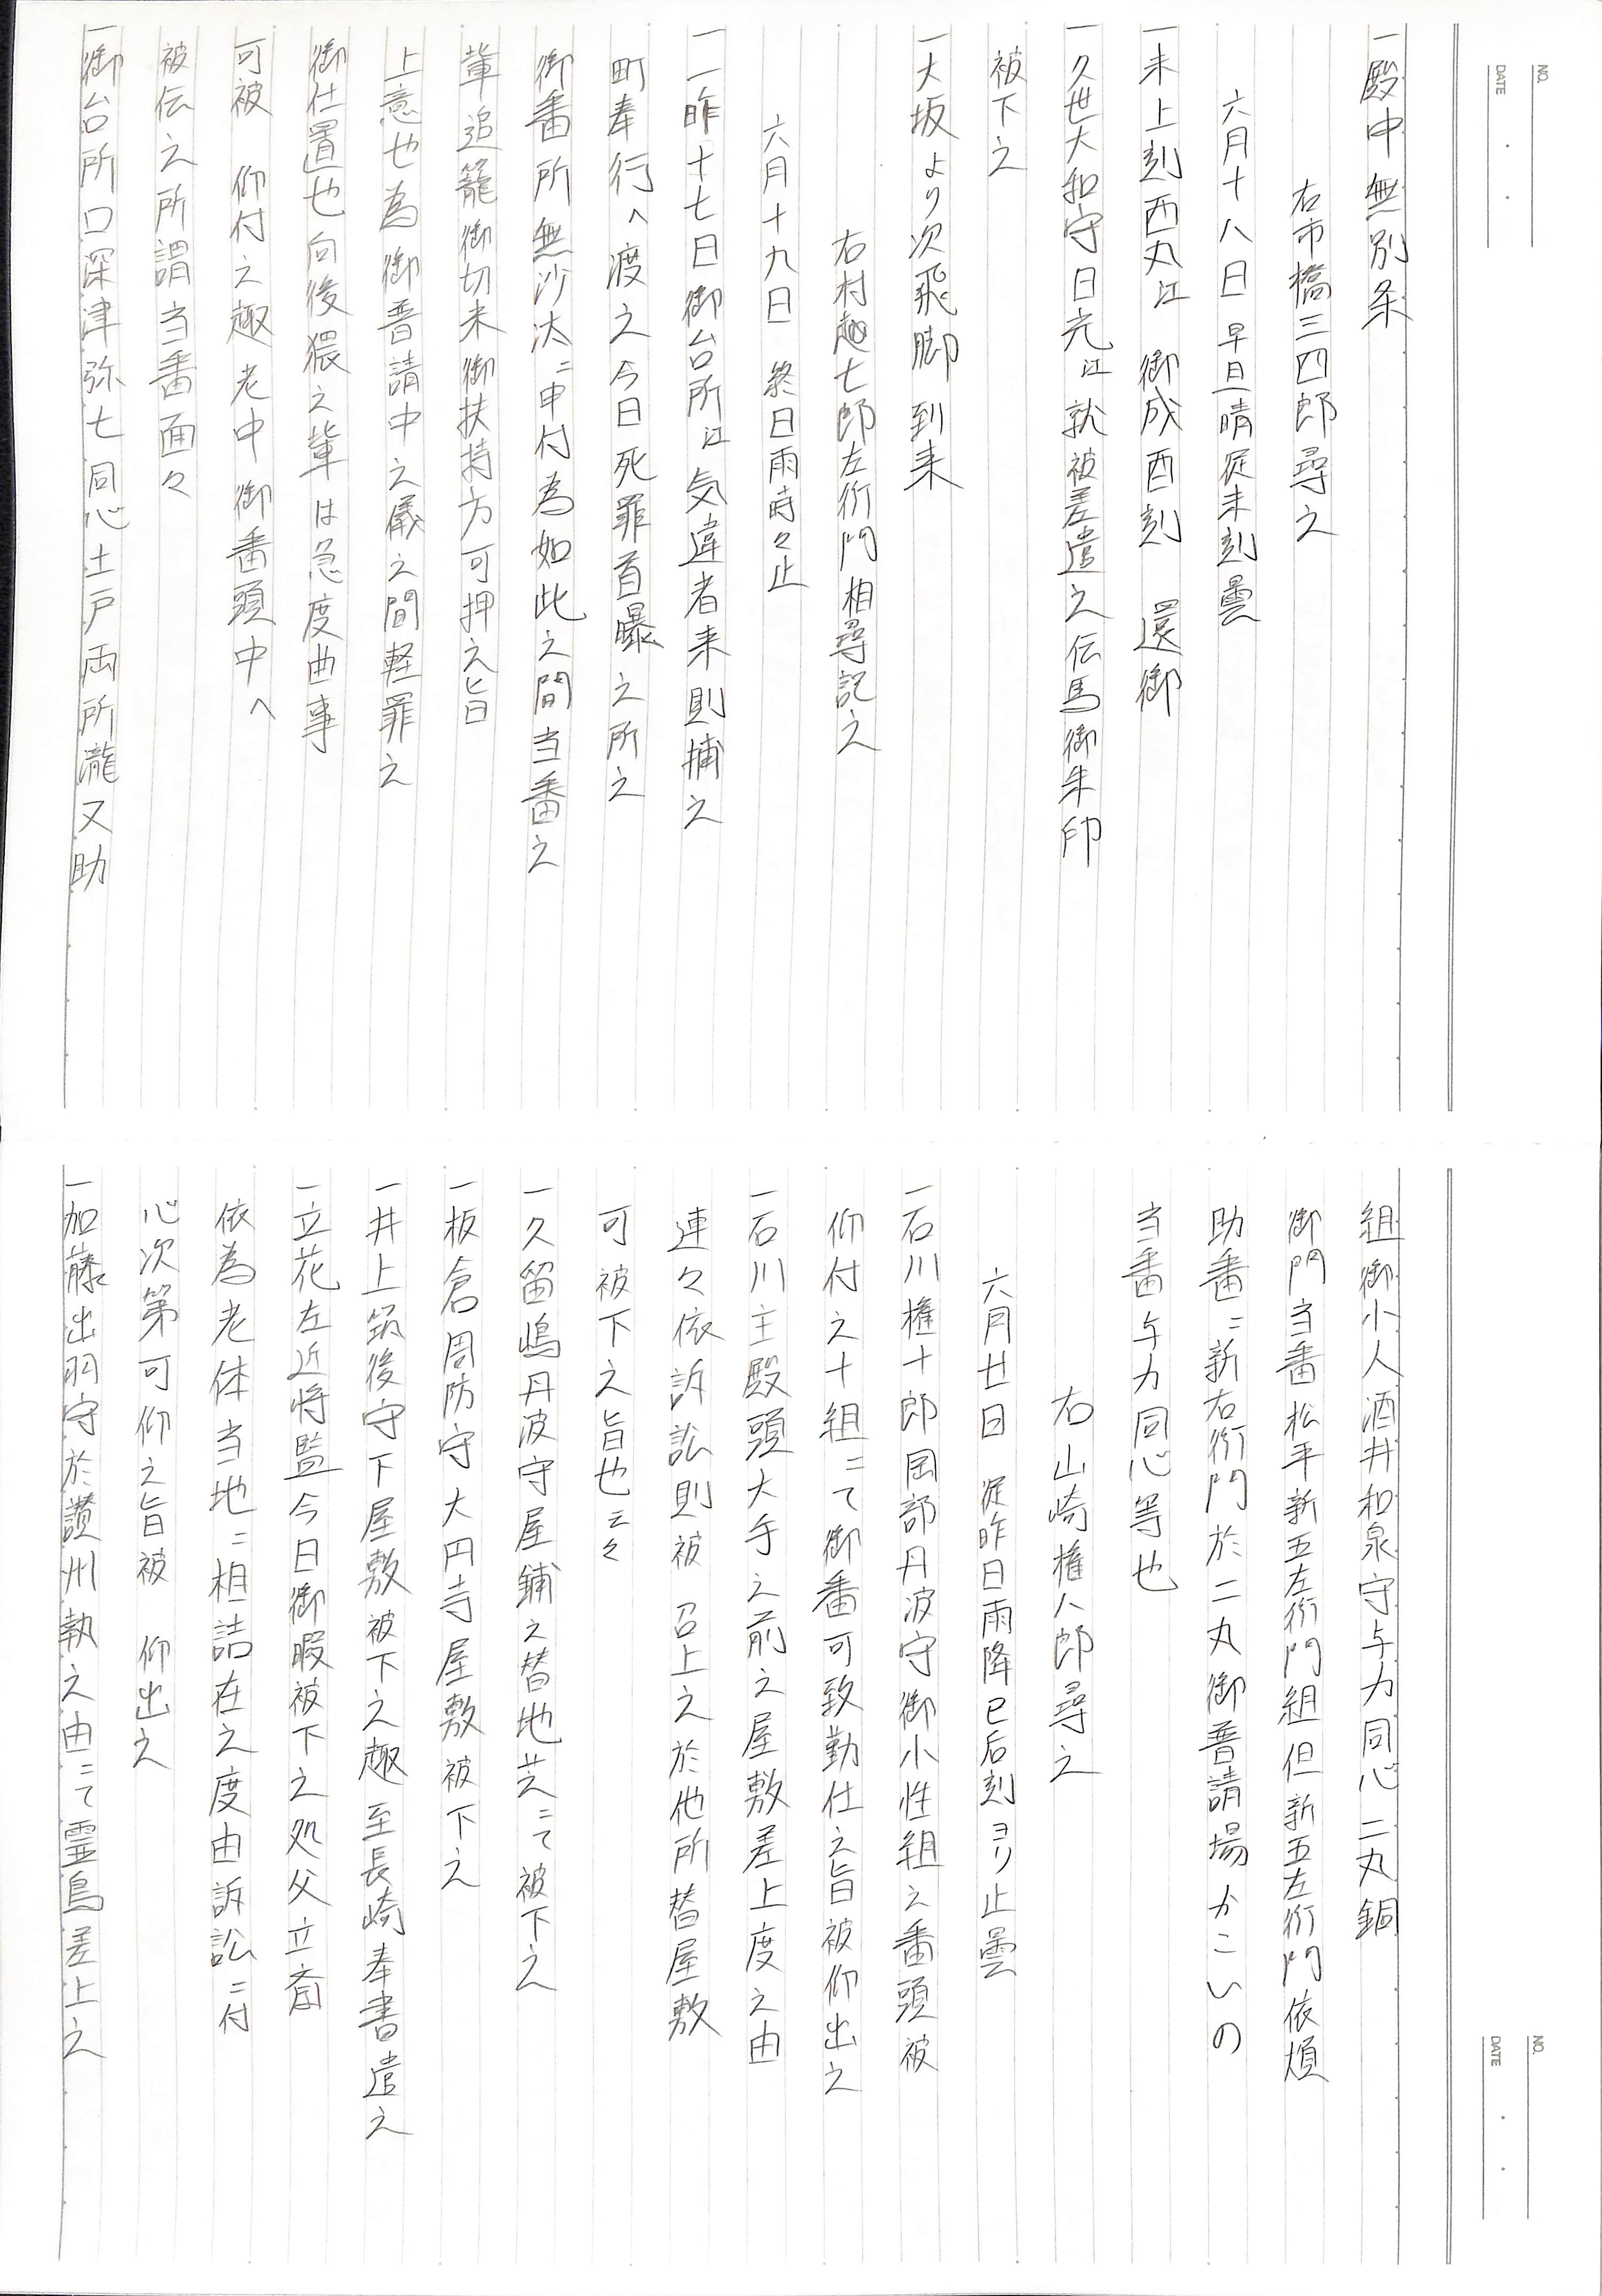 NO.
DATE
一殿中無別条
右市橋三四郎尋之
六月十八日 早旦晴従未刻曇
一未上刻西丸江 御成酉刻 還御
一久世大和守日光江就被差遣之伝馬御朱印
被下之
一大坂より次飛脚到来
右村越七郎左衛門相尋記之
六月十九日 終日雨時々止
一一昨十七日御台所江気違者来則捕之
町奉行へ渡之今日死罪首曝之所之
御番所無沙汰ニ申付為如此之間当番之
輩追籠御切米御扶持方可押之旨
上意也為御普請中之儀之間軽罪之
御仕置也向後猥之輩は急度曲事
可被 仰付之趣老中御番頭中へ
被伝之所謂当番面々
一御台所口深津弥七同心土戸両所瀧又助
NO.
DATE
組御小人酒井和泉守与力同心二丸銅
御門当番松平新五左衛門組但新五左衛門依煩
助番ニ新右衛門於二丸御普請場かこいの
当番与力同心等也
右山崎権八郎尋之
六月廿日 従昨日雨降巳后刻ヨリ止曇
一石川権十郎岡部丹波守御小性組之番頭被
仰付之十組ニて御番可致勤仕之旨被仰出之
一石川主殿頭大手之前之屋敷差上度之由
連々依訴訟則被 召上之於他所替屋敷
可被下之旨也云々
一久留嶋丹波守屋鋪之替地芝ニて被下之
一板倉周防守大円寺屋敷被下之
一井上筑後守下屋敷被下之趣至長崎奉書遣之
一立花左近将監今日御暇被下之処父立斎
依為老体当地ニ相詰在之度由訴訟ニ付
心次第可仰之旨被 仰出之
一加藤出羽守於讃州執之由ニて霊鳥差上之